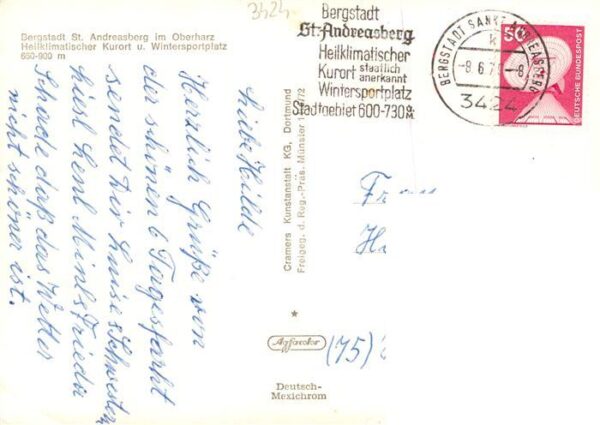 3424
Bergstadt St. Andreasberg im Oberharz
Heilklimatischer Kurort u. Wintersportplatz
650-900 m
Bergstadt
St. Andreasberg
Heilklimatischer
Kurort staatlich anerkannt
Wintersportplatz
Stadtgebiet 600-730 m
BERGSTADT SANKT ANDREASBERG
k
-8.6.7 -8
3424
50
DEUTSCHE BUNDESPOST
Liebe Hilde
Herzlich Grüße von
der schönen 6 Tagesfarht
sendet dir Luise &Schwester
Schade daß das Wetter
nicht schöner ist.
Cramers Kunstanstalt KG, Dortmund
Freigeg. d. Reg.-Präs. Münster
Fr
Ha
(75)
Agfacolor
Deutsch-
Mexichrom